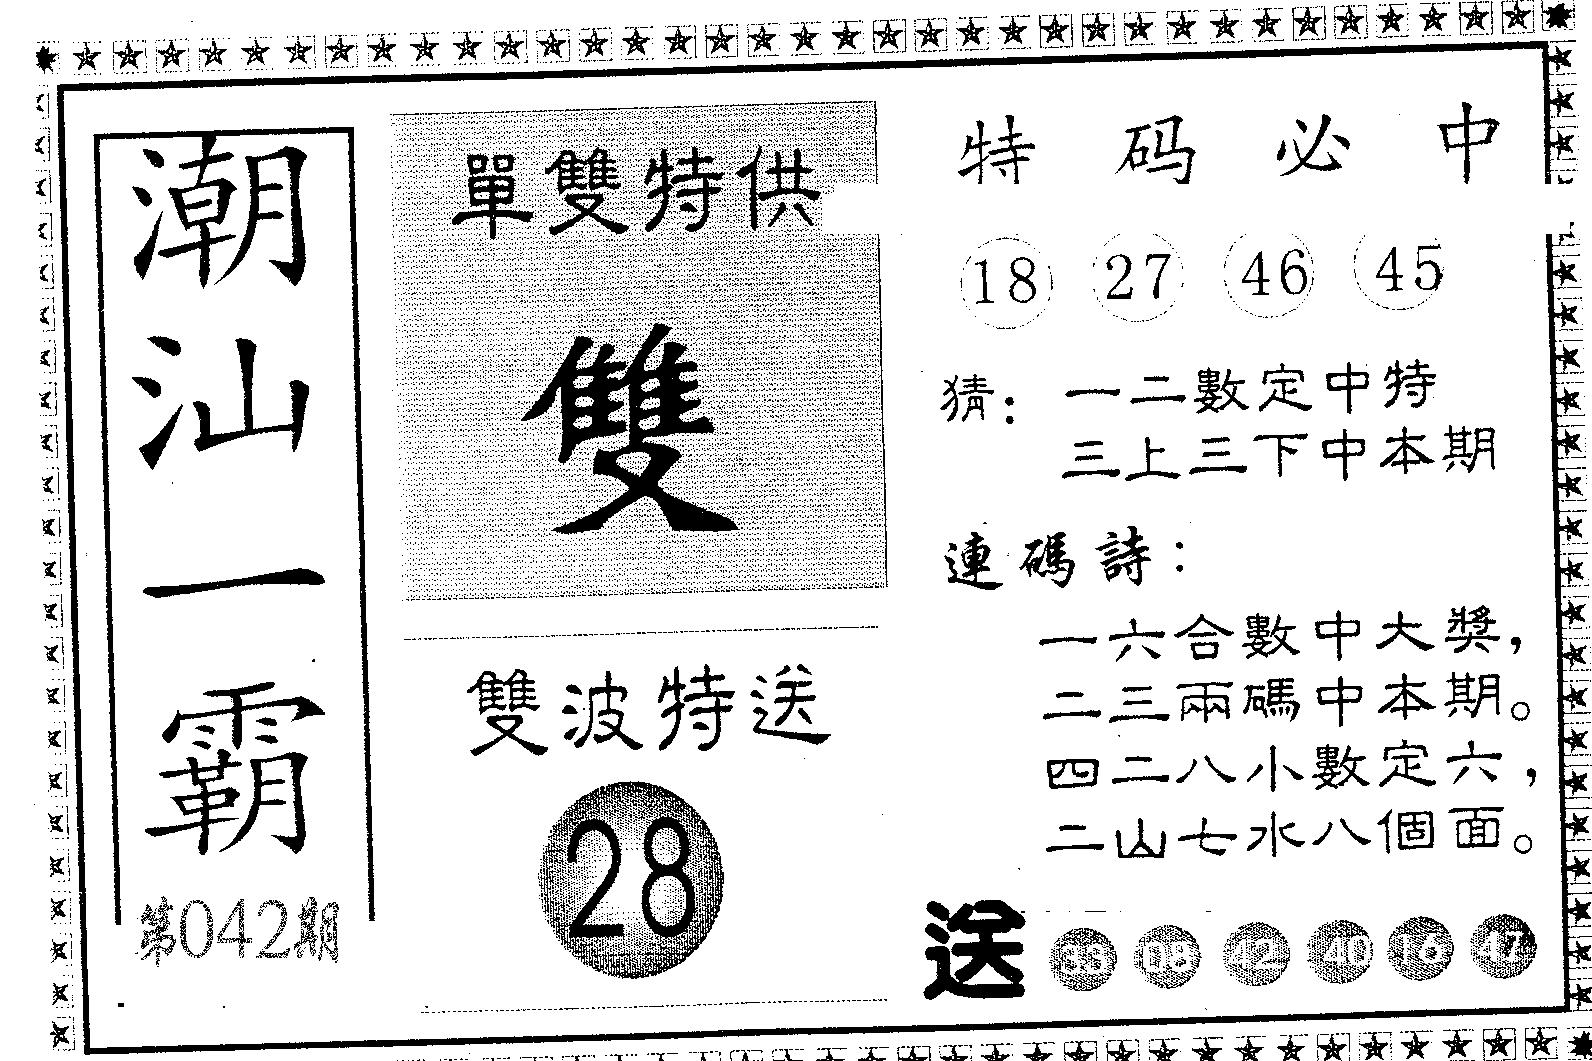 潮汕一霸
第042期
單雙特供
雙
雙波特送
28
特码必中
18 27 46 45
猜：一二數定中特
三上三下中本期
連碼詩：
一六合數中大獎，
二三兩碼中本期。
四二八小數定六，
二山七水八個面。
送 33 08 42 40 16 47